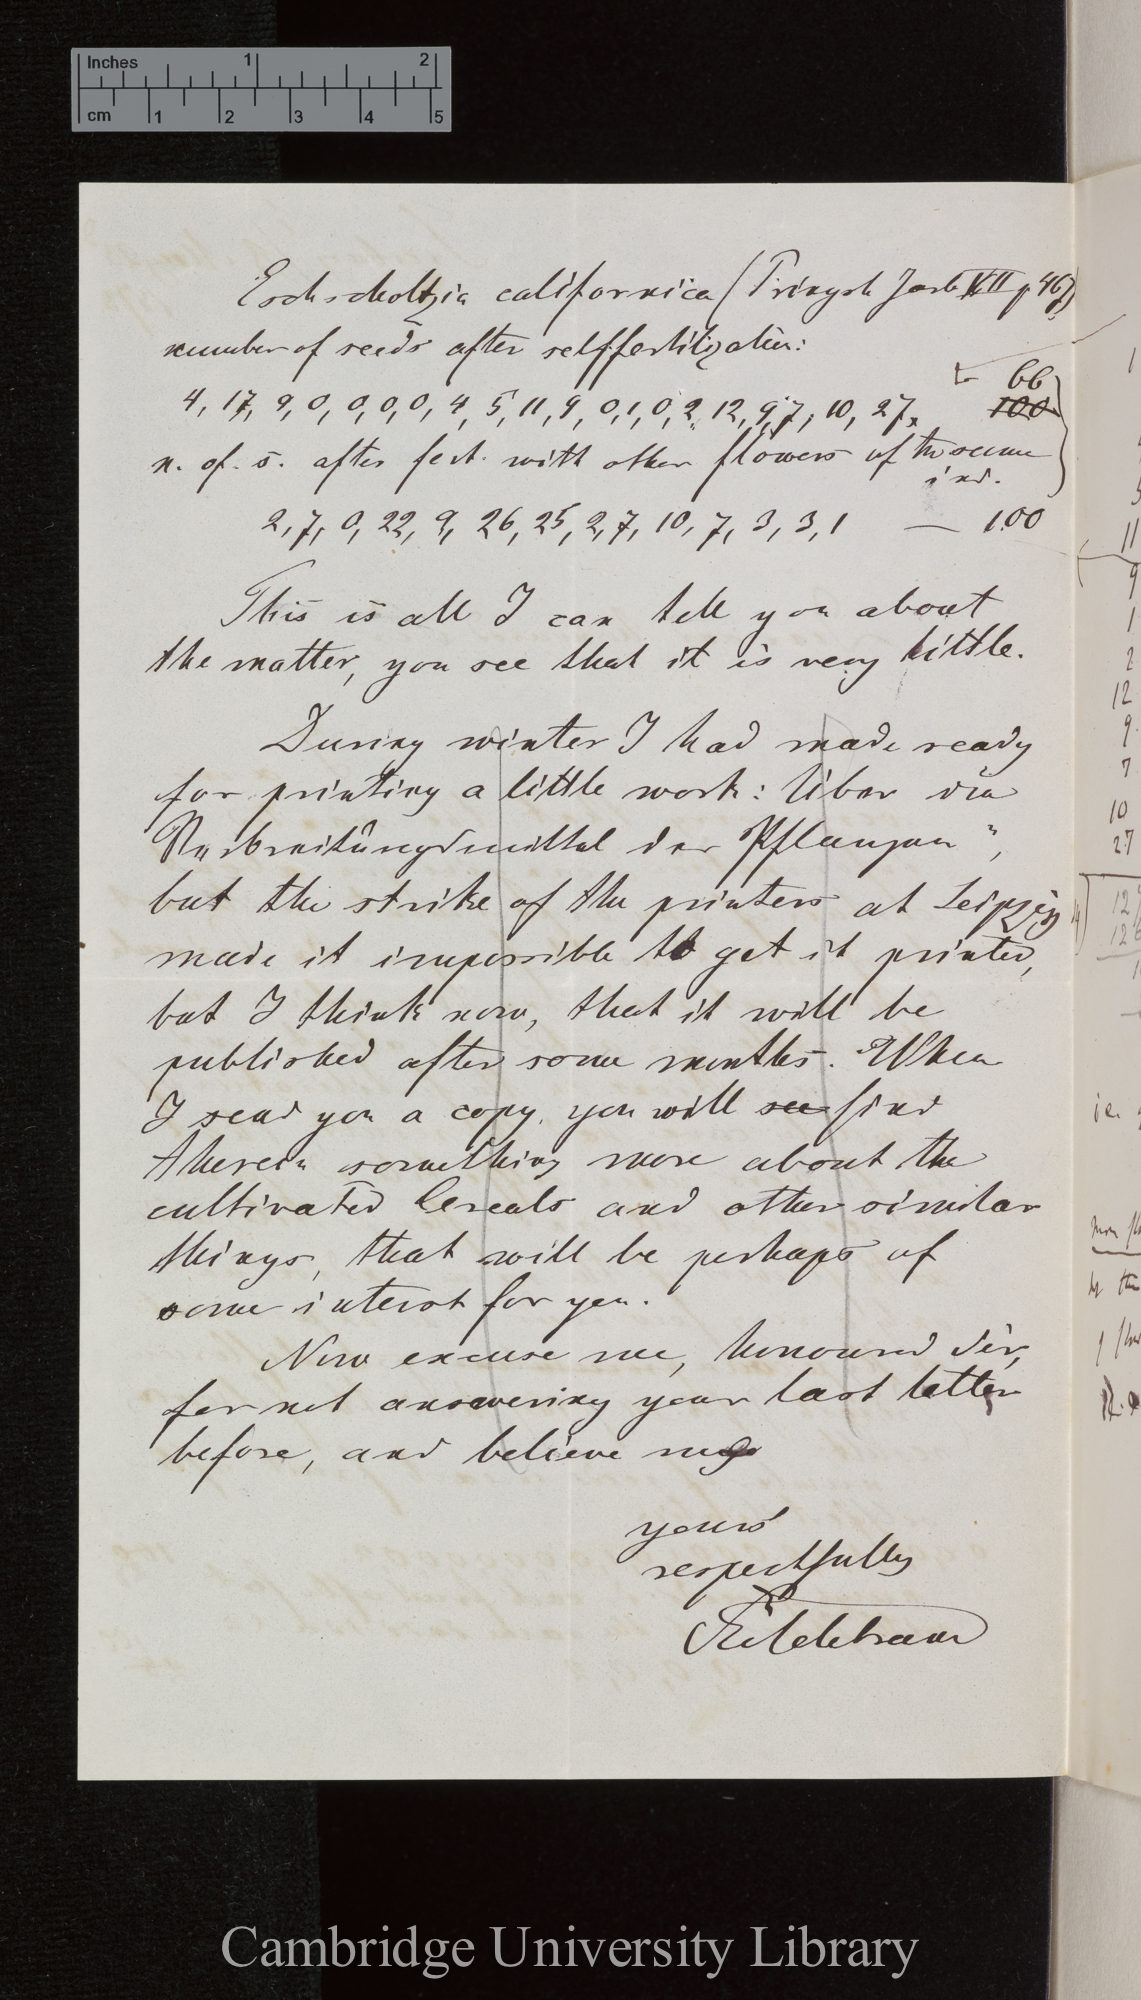 Inches 1 2
cm 1 2 3 4 5
Eschscholtzia californica (Pringsh Jarb VII p 467)
number of seeds after selffertilization:
66
4, 17, 9, 0, 0, 0, 0, 4, 5, 11, 9, 0, 1, 0, 2, 12, 9, 7, 10, 27, 100
n. of. s. after fert. with other flowers of the same
ind.
2, 7, 0, 22, 9, 26, 25, 2, 7, 10, 7, 3, 3, 1 — 100
This is all I can tell you about
the matter, you see that it is very little.
During winter I had made ready
for printing a little work: Über die
Verbreitungsmittel der Pflanzen",
but the strike of the printers at Leipzig
made it impossible to get it printed,
but I think now, that it will be
published after some months. When
I send you a copy, you will see find
therein something more about the
cultivated Cereals and other similar
things, that will be perhaps of
some interest for you.
Now excuse me, honoured Sir,
for not answering your last letter
before, and believe me
yours
respectfully
Hildebrand
11
9
1
2
12
9
7
10
27
Cambridge University Library